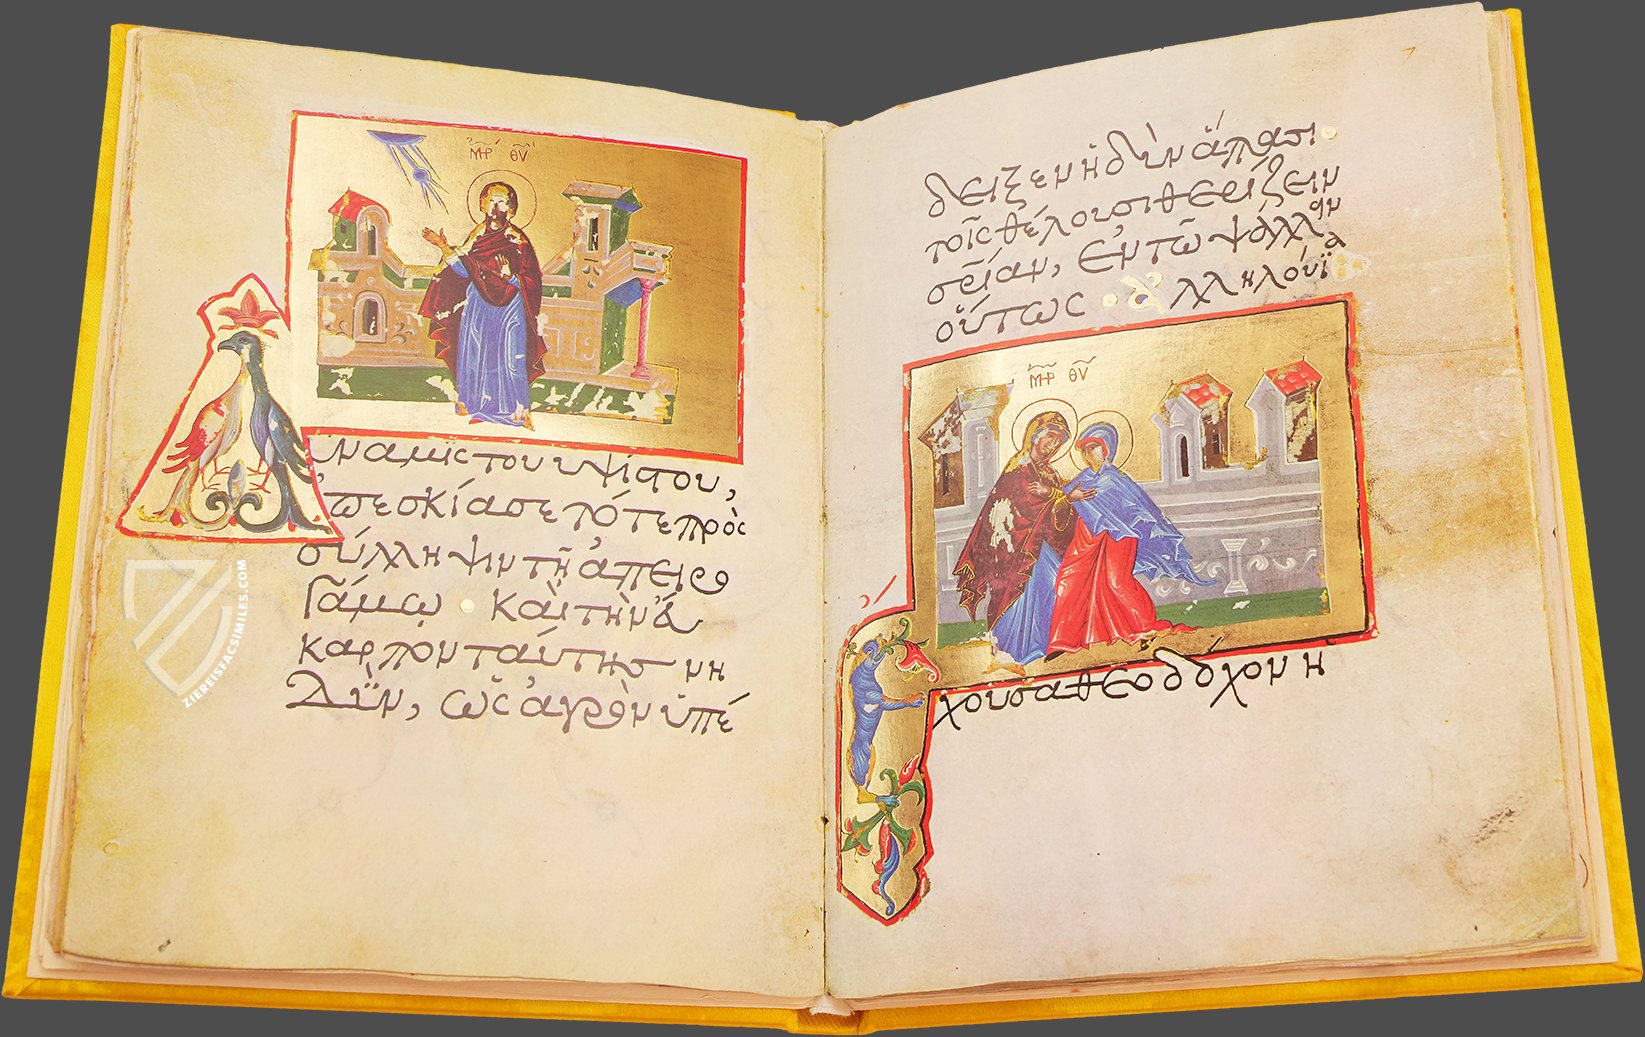 ΜΡ ΘΥ
Δύναμις τοῦ ὑψίστου,
ἐπεσκίασε τότε πρὸς
σύλληψιν τῇ ἀπειρο
γάμῳ · καὶ τὴν εὔ
καρπον ταύτης νη
δὺν, ὡς ἀγρὸν ὑπέ
ZIEREISFACSIMILES.COM
δειξεν ἡδὺν ἅπασι ·
τοῖς θέλουσι θερίζειν
σρίαν, ἐν τῶ ψάλλειν
οὕτως · ἀλληλούϊα
ΜΡ ΘΥ
Ἔχουσα θεοδόχον ἡ